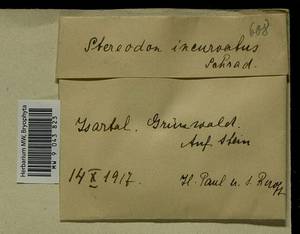 608
Stereodon incurvatus
Schrad.
Isartal, Grünwald.
Auf Stein
14 X 1917.
H. Paul u.
Herbarium MW, Bryophyta
MW 9 043 823